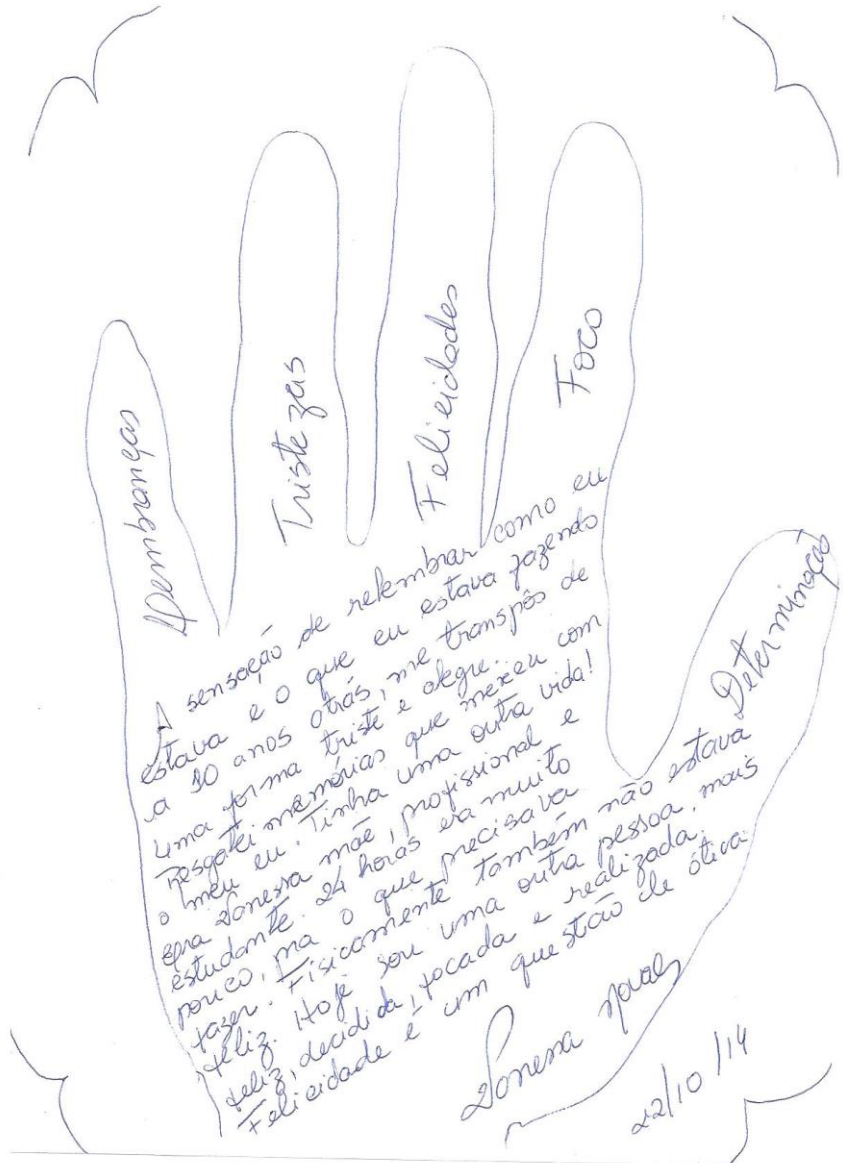 Lembranças
Tristezas
Felicidades
Foco
Determinação
A sensação de relembrar como eu
estava e o que eu estava fazendo
a 10 anos atrás, me transpôs de
uma forma triste e alegre.
Resgatei memórias que mexeu com
o meu eu. Tinha uma outra vida!
era Vanessa mãe, profissional e
estudante. 24 horas era muito
pouco, pra o que precisava
fazer. Fisicamente também não estava
feliz. Hoje sou uma outra pessoa, mais
feliz, decidida, focada e realizada.
Felicidade é um questão de ótica
Vanessa Novaes
22/10/14